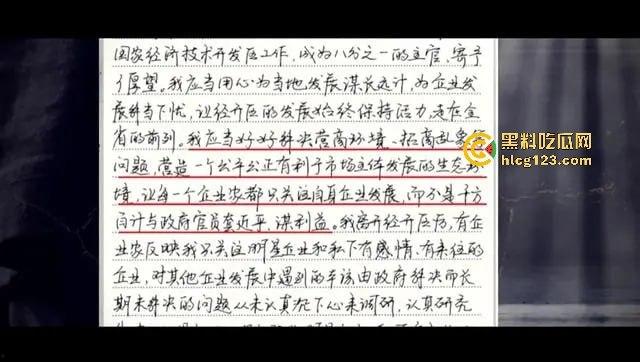 国家经济技术开发区工作，成为八分之一的主官，寄予
了厚望。我应当用心为当地发展谋长远计，为企业发
展解当下忧，让经开区的发展始终保持活力，走在全
省的前列。我应当好好解决营商环境、招商乱象
问题，营造一个公平公正有利于市场主体发展的生态环
境，让每一个企业家都只关注自身企业发展，而不是千方
百计与政府官员套近乎、谋利益。我离开经开区后，有企
业家反映我只关注明星企业和私下有感情、有来往的
企业，对其他企业发展中遇到的本该由政府解决而长
期未解决的问题从未认真沉下心来调研，认真研究
黑料吃瓜网
hlcg123.com